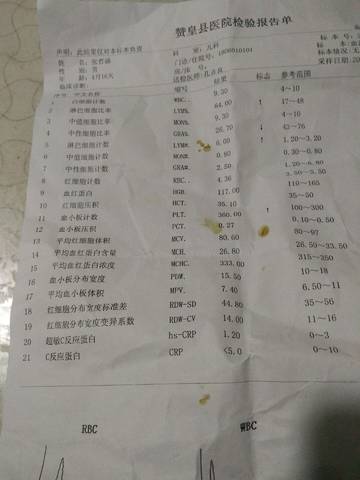 赞皇县医院检验报告单
声明：此结果仅对本标本负责
科 室：儿科
标 本 号：
姓 名：
门诊/住院号：
标本：血
性 别：男
床/床 号：
标本情况：无
年 龄：4月16天
送检医师：
采样日期：20
临床诊断：
缩写 结果 标志 参考范围
1 白细胞计数 WBC. 9.30 4~10
2 淋巴细胞比率 LYM%. 64.00 ↑ 17~48
3 中值细胞比率 MON%. 9.30 4~10
4 中性细胞比率 GRA%. 26.70 ↓ 43~76
5 淋巴细胞计数 LYM#. 6.00 ↑ 1.20~3.20
6 中值细胞计数 MON#. 0.80 0.30~0.80
7 中性细胞计数 GRA#. 2.50 1.20~6.80
8 红细胞计数 RBC. 4.36 3.50~5.50
9 血红蛋白 HGB. 117.00 110~165
10 红细胞压积 HCT. 35.10 35~50
11 血小板计数 PLT. 360.00 ↑ 100~300
12 血小板压积 PCT. 0.27 0.10~0.50
13 平均红细胞体积 MCV. 80.60 80~97
14 平均血红蛋白含量 MCH. 26.80 26.50~33.50
15 平均血红蛋白浓度 MCHC. 333.00 315~350
16 血小板分布宽度 PDW. 15.50 10~18
17 平均血小板体积 MPV. 7.40 6.50~11
18 红细胞分布宽度标准差 RDW-SD 44.80 35~56
19 红细胞分布宽度变异系数 RDW-CV 14.00 11~16
20 超敏C反应蛋白 hs-CRP 1.20 0~3
21 C反应蛋白 CRP <5.0 0~10
RBC WBC